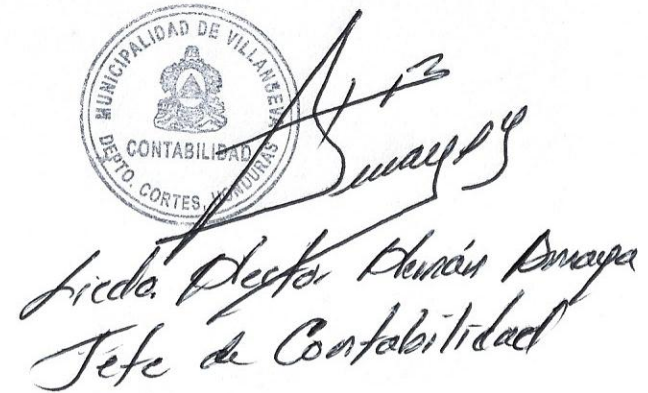 MUNICIPALIDAD DE VILLANUEVA
CONTABILIDAD
DEPTO. CORTES, HONDURAS
Amaya
Licdo. Héctor Hernán Amaya
Jefe de Contabilidad